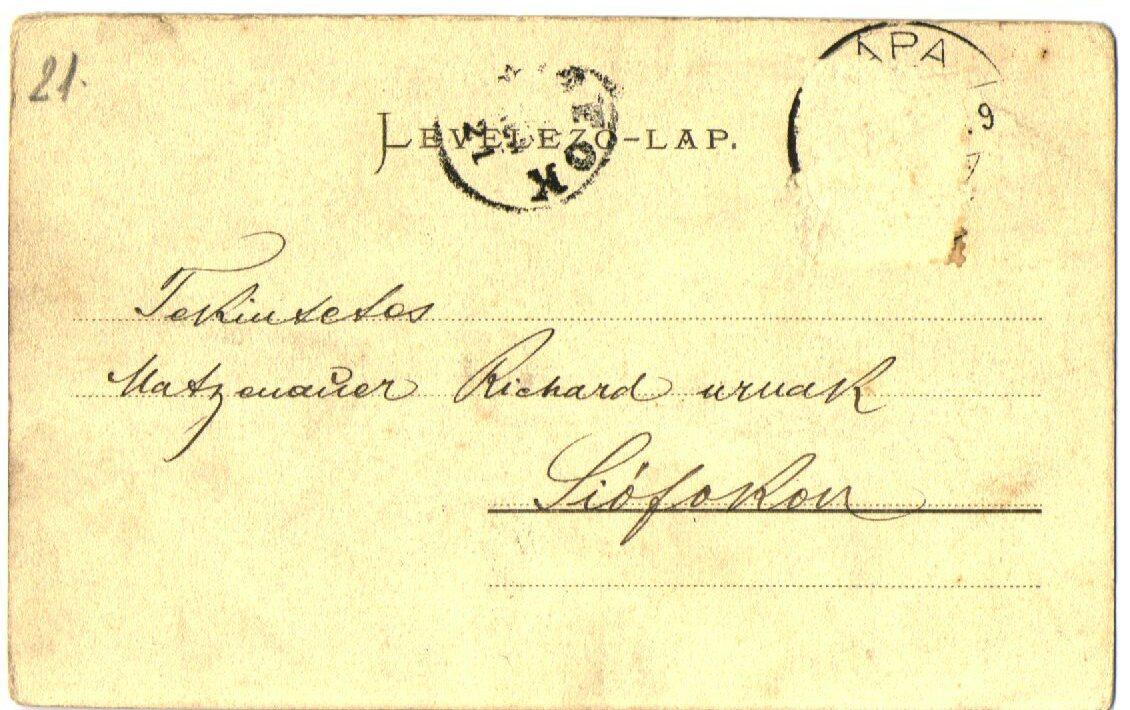 21.
LEVELEZŐ-LAP.
APA
9
FOK
21
Tekintetes
Matzenauer Richard urnak
Siófokon